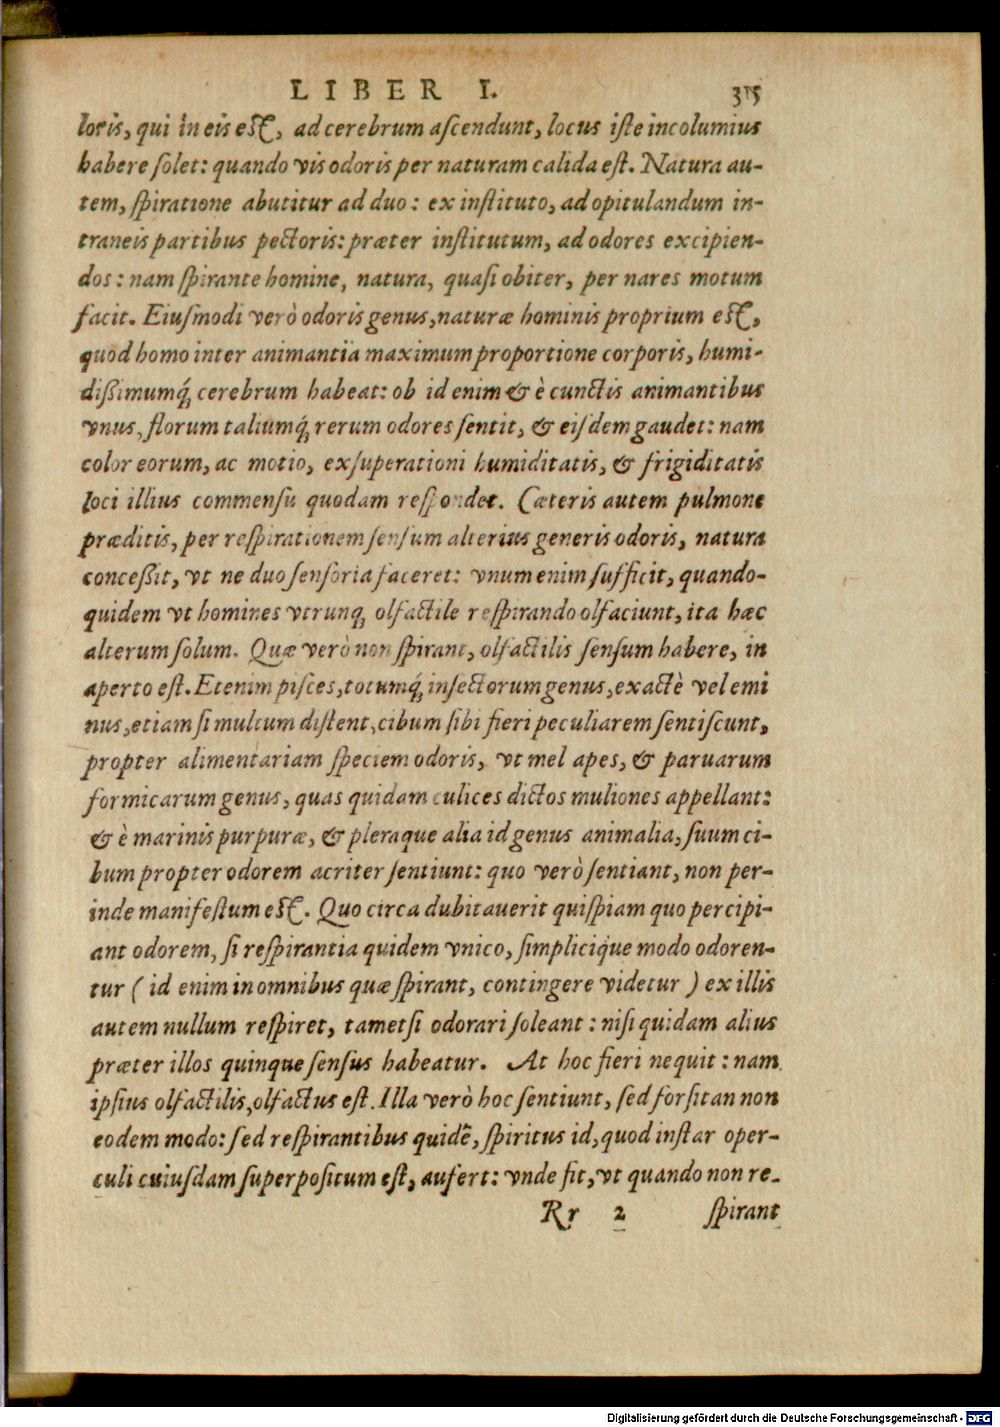 LIBER I. 315
loris, qui in eis est, ad cerebrum ascendunt, locus iste incolumius
habere solet: quando vis odoris per naturam calida est. Natura au-
tem, spiratione abutitur ad duo: ex instituto, ad opitulandum in-
traneis partibus pectoris: præter institutum, ad odores excipien-
dos: nam spirante homine, natura, quasi obiter, per nares motum
facit. Eiusmodi verò odoris genus, naturæ hominis proprium est,
quod homo inter animantia maximum proportione corporis, humi-
dißimumq́; cerebrum habeat: ob id enim & è cunctis animantibus
vnus, florum taliumq́; rerum odores sentit, & eisdem gaudet: nam
color eorum, ac motio, exsuperationi humiditatis, & frigiditatis
loci illius commensu quodam respondet. Cæteris autem pulmone
præditis, per respirationem sensum alterius generis odoris, natura
conceßit, vt ne duo sensoria faceret: vnum enim sufficit, quando-
quidem vt homines vtrunq; olfactile respirando olfaciunt, ita hæc
alterum solum. Quæ verò non spirant, olfactilis sensum habere, in
aperto est. Etenim pisces, totumq́; insectorum genus, exactè vel emi
nus, etiam si multum distent, cibum sibi fieri peculiarem sentiscunt,
propter alimentariam speciem odoris, vt mel apes, & paruarum
formicarum genus, quas quidam culices dictos muliones appellant:
& è marinis purpuræ, & pleraque alia id genus animalia, suum ci-
bum propter odorem acriter sentiunt: quo verò sentiant, non per-
inde manifestum est. Quo circa dubitauerit quispiam quo percipi-
ant odorem, si respirantia quidem vnico, simplicique modo odoren-
tur ( id enim in omnibus quæ spirant, contingere videtur ) ex illis
autem nullum respiret, tametsi odorari soleant: nisi quidam alius
præter illos quinque sensus habeatur. At hoc fieri nequit: nam
ipsius olfactilis, olfactus est. Illa verò hoc sentiunt, sed forsitan non
eodem modo: sed respirantibus quidē, spiritus id, quod instar oper-
culi cuiusdam superpositum est, aufert: vnde fit, vt quando non re-
Rr 2 spirant
Digitalisierung gefördert durch die Deutsche Forschungsgemeinschaft - DFG